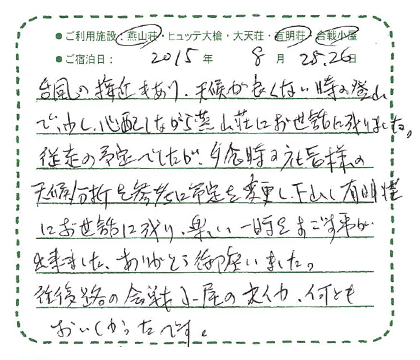 ●ご利用施設：燕山荘・ヒュッテ大槍・大天荘・有明荘・合戦小屋
●ご宿泊日： 2015 年 8 月 25,26 日
台風の接近もあり、天候が良くない時の登山
で、少し心配しながら燕山荘にお世話に成りました。
縦走の予定でしたが、夕食時の社長様の
天候分析を参考に予定を変更し、下山し有明荘
にお世話に成り、楽しい一時をすごす事が
出来ました、ありがとう御座いました。
往復路の合戦小屋のスイカ、何とも
おいしかったです。